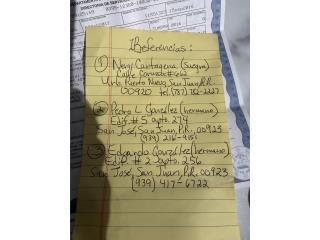 Referencias:
① Nery Cartagena (suegra)
Calle Corozal #662
Urb. Puerto Nuevo, San Juan, P.R.
00920 tel. (787) 782-2227
② Pedro L González (hermano)
Edif. #5 apto. 274
San José, San Juan, P.R., 00923
(939) 216-9151
③ Edgardo González (hermano)
Edif. #2 apto. 256
San José, San Juan, P.R. 00923
(939) 417-6722